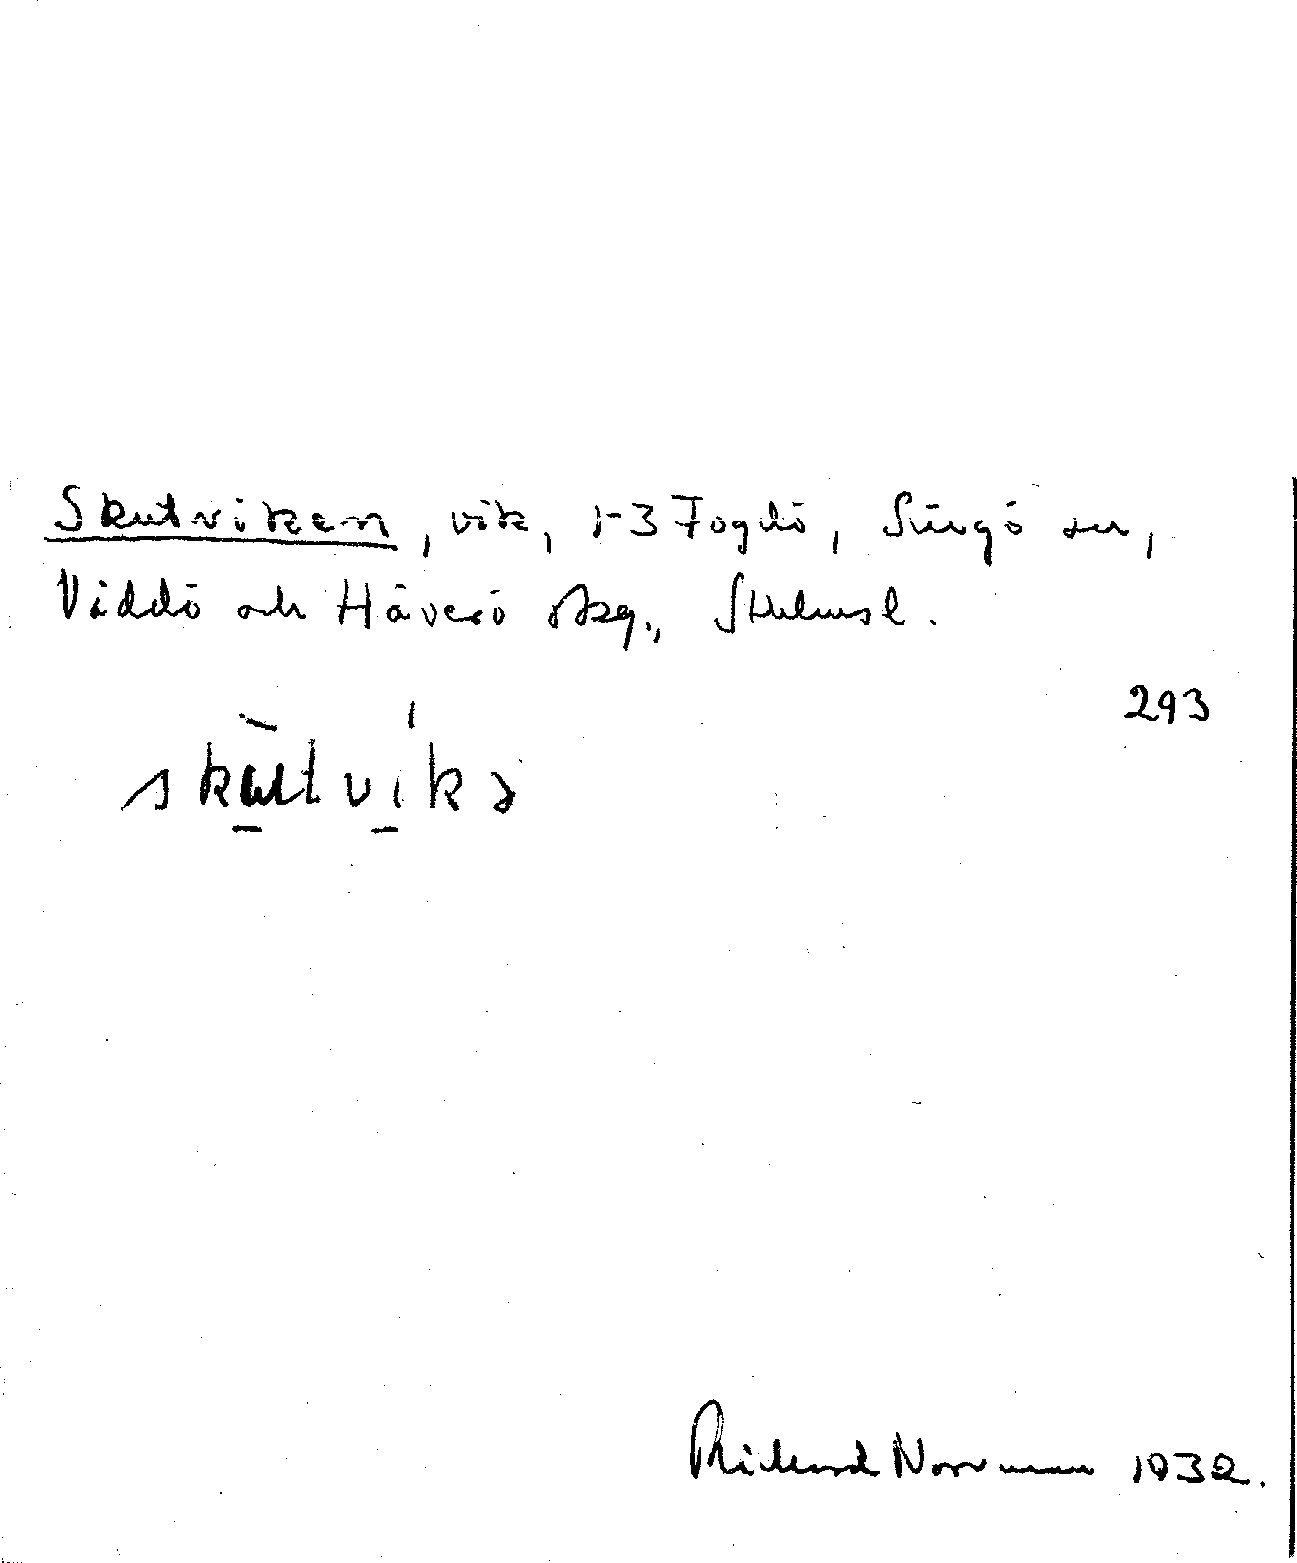 Skutviken, vik, 1-3 Fogdö, Singö sn,
Väddö och Häverö skg., Sthlmsl.
293
Rickard Norrman 1932.